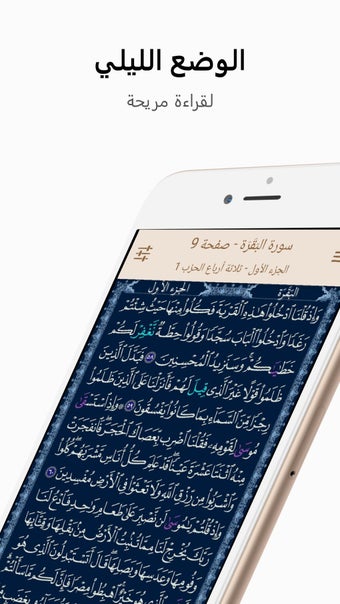 الوضع الليلي
لقراءة مريحة
سورة البَقَرَة - صفحة 9
الجزء الأول - ثلاثة أرباع الحزب 1
البَقَرَة الجزء الأول
وَإِذْ قُلْنَا ٱدْخُلُوا۟ هَٰذِهِ ٱلْقَرْيَةَ فَكُلُوا۟ مِنْهَا حَيْثُ شِئْتُمْ
رَغَدًا وَٱدْخُلُوا۟ ٱلْبَابَ سُجَّدًا وَقُولُوا۟ حِطَّةٌ نَّغْفِرْ لَكُمْ
خَطَٰيَٰكُمْ وَسَنَزِيدُ ٱلْمُحْسِنِينَ ٥٨ فَبَدَّلَ ٱلَّذِينَ
ظَلَمُوا۟ قَوْلًا غَيْرَ ٱلَّذِى قِيلَ لَهُمْ فَأَنزَلْنَا عَلَى ٱلَّذِينَ ظَلَمُوا۟
رِجْزًا مِّنَ ٱلسَّمَآءِ بِمَا كَانُوا۟ يَفْسُقُونَ ٥٩ وَإِذِ ٱسْتَسْقَىٰ
مُوسَىٰ لِقَوْمِهِۦ فَقُلْنَا ٱضْرِب بِّعَصَاكَ ٱلْحَجَرَ فَٱنفَجَرَتْ
مِنْهُ ٱثْنَتَا عَشْرَةَ عَيْنًا قَدْ عَلِمَ كُلُّ أُنَاسٍ مَّشْرَبَهُمْ كُلُوا۟
وَٱشْرَبُوا۟ مِن رِّزْقِ ٱللَّهِ وَلَا تَعْثَوْا۟ فِى ٱلْأَرْضِ مُفْسِدِينَ ٦٠
وَإِذْ قُلْتُمْ يَٰمُوسَىٰ لَن نَّصْبِرَ عَلَىٰ طَعَامٍ وَٰحِدٍ فَٱدْعُ لَنَا
رَبَّكَ يُخْرِجْ لَنَا مِمَّا تُنۢبِتُ ٱلْأَرْضُ مِنۢ بَقْلِهَا وَقِثَّآئِهَا
وَفُومِهَا وَعَدَسِهَا وَبَصَلِهَا قَالَ أَتَسْتَبْدِلُونَ ٱلَّذِى هُوَ
مِصْرًا فَإِنَّ لَكُم مَّا سَأَلْتُمْ